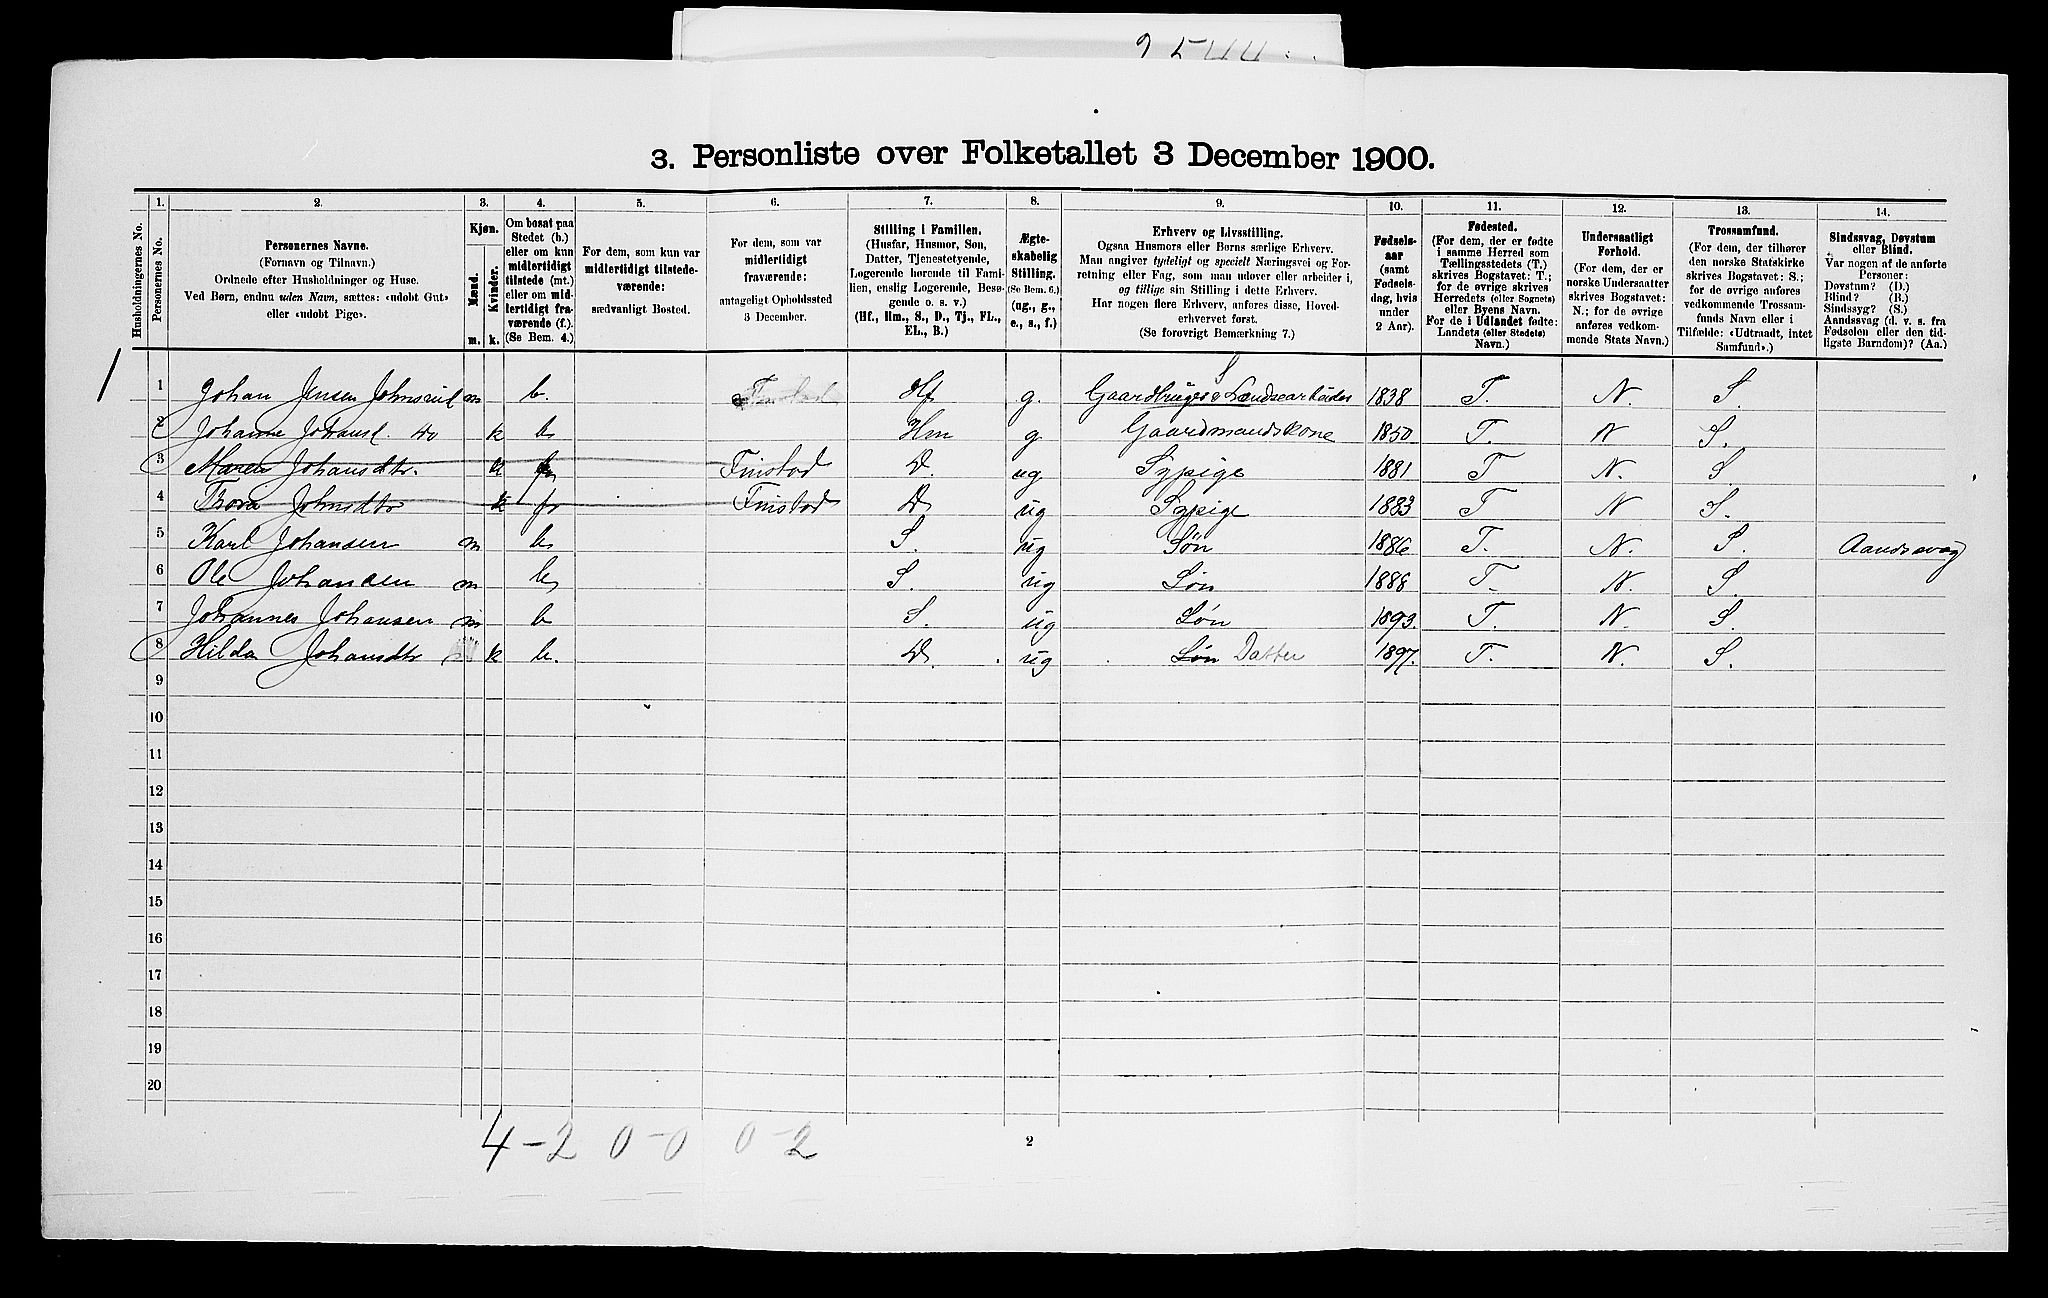 2544
3. Personliste over Folketallet 3 December 1900.
Husholdningernes No.
1.
Personernes No.
2.
Personernes Navne.
(Fornavn og Tilnavn.)
Ordnede efter Husholdninger og Huse.
Ved Børn, endnu uden Navn, sættes: «udobt Gut»
eller «udobt Pige».
3.
Kjøn.
Mænd.
Kvinder.
m. k.
4.
Om bosat paa
Stedet (b.)
eller om kun
midlertidigt
tilstede (mt.)
eller om mid-
lertidigt fra-
værende (f.).
(Se Bem. 4.)
5.
For dem, som kun var
midlertidigt tilstede-
værende:
sædvanligt Bosted.
6.
For dem, som var
midlertidigt
fraværende:
antageligt Opholdssted
3 December.
7.
Stilling i Familien.
(Husfar, Husmor, Søn,
Datter, Tjenestetyende,
Logerende hørende til Fami-
lien, enslig Logerende, Besø-
gende o. s. v.)
(Hf., Hm., S., D., Tj., FL.,
EL., B.)
8.
Ægte-
skabelig
Stilling.
(Se Bem. 6.)
(ug., g.,
e., s., f.)
9.
Erhverv og Livsstilling.
Ogsaa Husmors eller Børns særlige Erhverv.
Man angiver tydeligt og specielt Næringsvei og For-
retning eller Fag, som man udover eller arbeider i,
og tillige sin Stilling i dette Erhverv.
Har nogen flere Erhverv, anføres disse, Hoved-
erhvervet først.
(Se forøvrigt Bemærkning 7.)
10.
Fødsels-
aar
(samt
Fødsels-
dag, hvis
under
2 Aar).
11.
Fødested.
(For dem, der er fødte
i samme Herred som
Tællingsstedets (T.)
skrives Bogstavet: T.;
for de øvrige skrives
Herredets (eller Sognets)
eller Byens Navn.
For de i Udlandet fødte:
Landets (eller Stedets)
Navn.)
12.
Undersaatligt
Forhold.
(For dem, der er
norske Undersaatter
skrives Bogstavet:
N.; for de øvrige
anføres vedkom-
mende Stats Navn.)
13.
Trossamfund.
(For dem, der tilhører
den norske Statskirke
skrives Bogstavet: S.;
for de øvrige anføres
vedkommende Trossam-
funds Navn eller i
Tilfælde: «Udtraadt, intet
Samfund».)
14.
Sindssvag, Døvstum
eller Blind.
Var nogen af de anførte
Personer:
Døvstum? (D.)
Blind? (B.)
Sindssyg? (S.)
Aandssvag (d. v. s. fra
Fødselen eller den tid-
ligste Barndom)? (Aa.)
1 1 Johan Jensen Johnsrud m b. Finstad Hf g. Gaardbruger &amp; Landsearbeider 1838 T. N. S.
2 Johanne Johansd. do k b Hm g Gaardmandskone 1850 T. N S.
3 Maren Johansdtr. k f Finstad D. ug Sypige 1881 T N. S.
4 Thora Johnsdtr k f Finstad D. ug Sypige 1883 T N S.
5 Karl Johansen m b S. ug Søn 1886 T. N. S. Aandssvag
6 Ole Johansen m b S. ug Søn 1888 T. N. S.
7 Johannes Johansen m b S. ug Søn 1893. T. N. S.
8 Hilda Johansdtr k b. D. ug Søn Datter 1897. T. N. S.
9
10
11
12
13
14
15
16
17
18
19
20
4-2 0-0 0-2
2